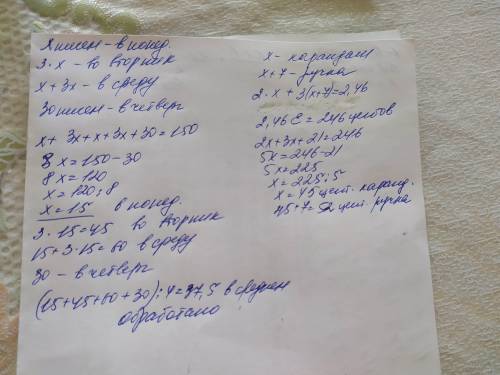 х писем - в понед.
3·х - во вторник
х+3х - в среду
30 писем - в четверг
х+3х+х+3х+30=150
8х=150-30
8х=120
х=120:8
х=15 в понед.
3·15=45 во вторник
15+3·15=60 в среду
30 - в четверг
(15+45+60+30):4=37,5 в среднем
обработано
х - карандаш
х+7 - ручка
2·х+3(х+7)=2,46
2,46 €=246 центов
2х+3х+21=246
5х=246-21
5х=225
х=225:5
х=45 цент. каранд.
45+7=52 цент. ручка